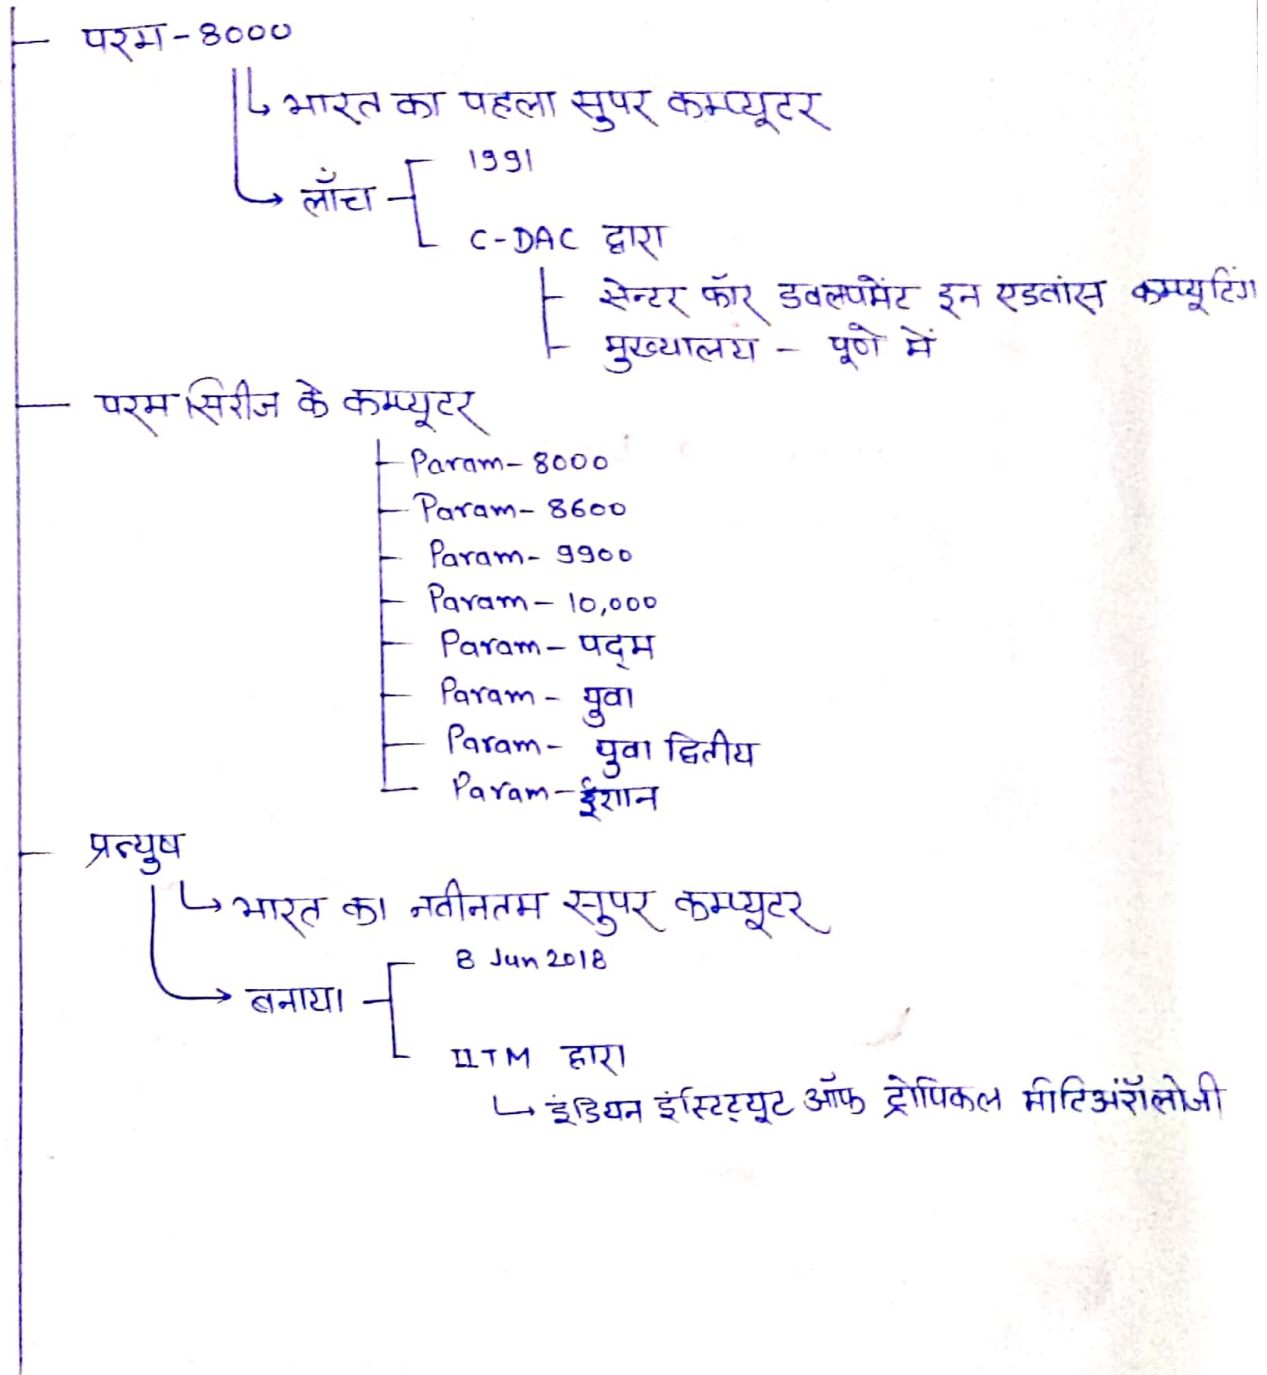 परम - 8000
भारत का पहला सुपर कम्प्यूटर
1991
लाँच
C-DAC द्वारा
सेन्टर फॉर डवलपमेंट इन एडवांस कम्प्यूटिंग
मुख्यालय - पूणे में
परम सिरीज के कम्प्यूटर
Param - 8000
Param - 8600
Param - 9900
Param - 10,000
Param - पद्म
Param - युवा
Param - युवा द्वितीय
Param - ईशान
प्रत्युष
भारत का नवीनतम सुपर कम्प्यूटर
8 Jun 2018
बनाया
IITM द्वारा
इंडियन इंस्टिट्यूट ऑफ ट्रोपिकल मीटिअरॉलोजी